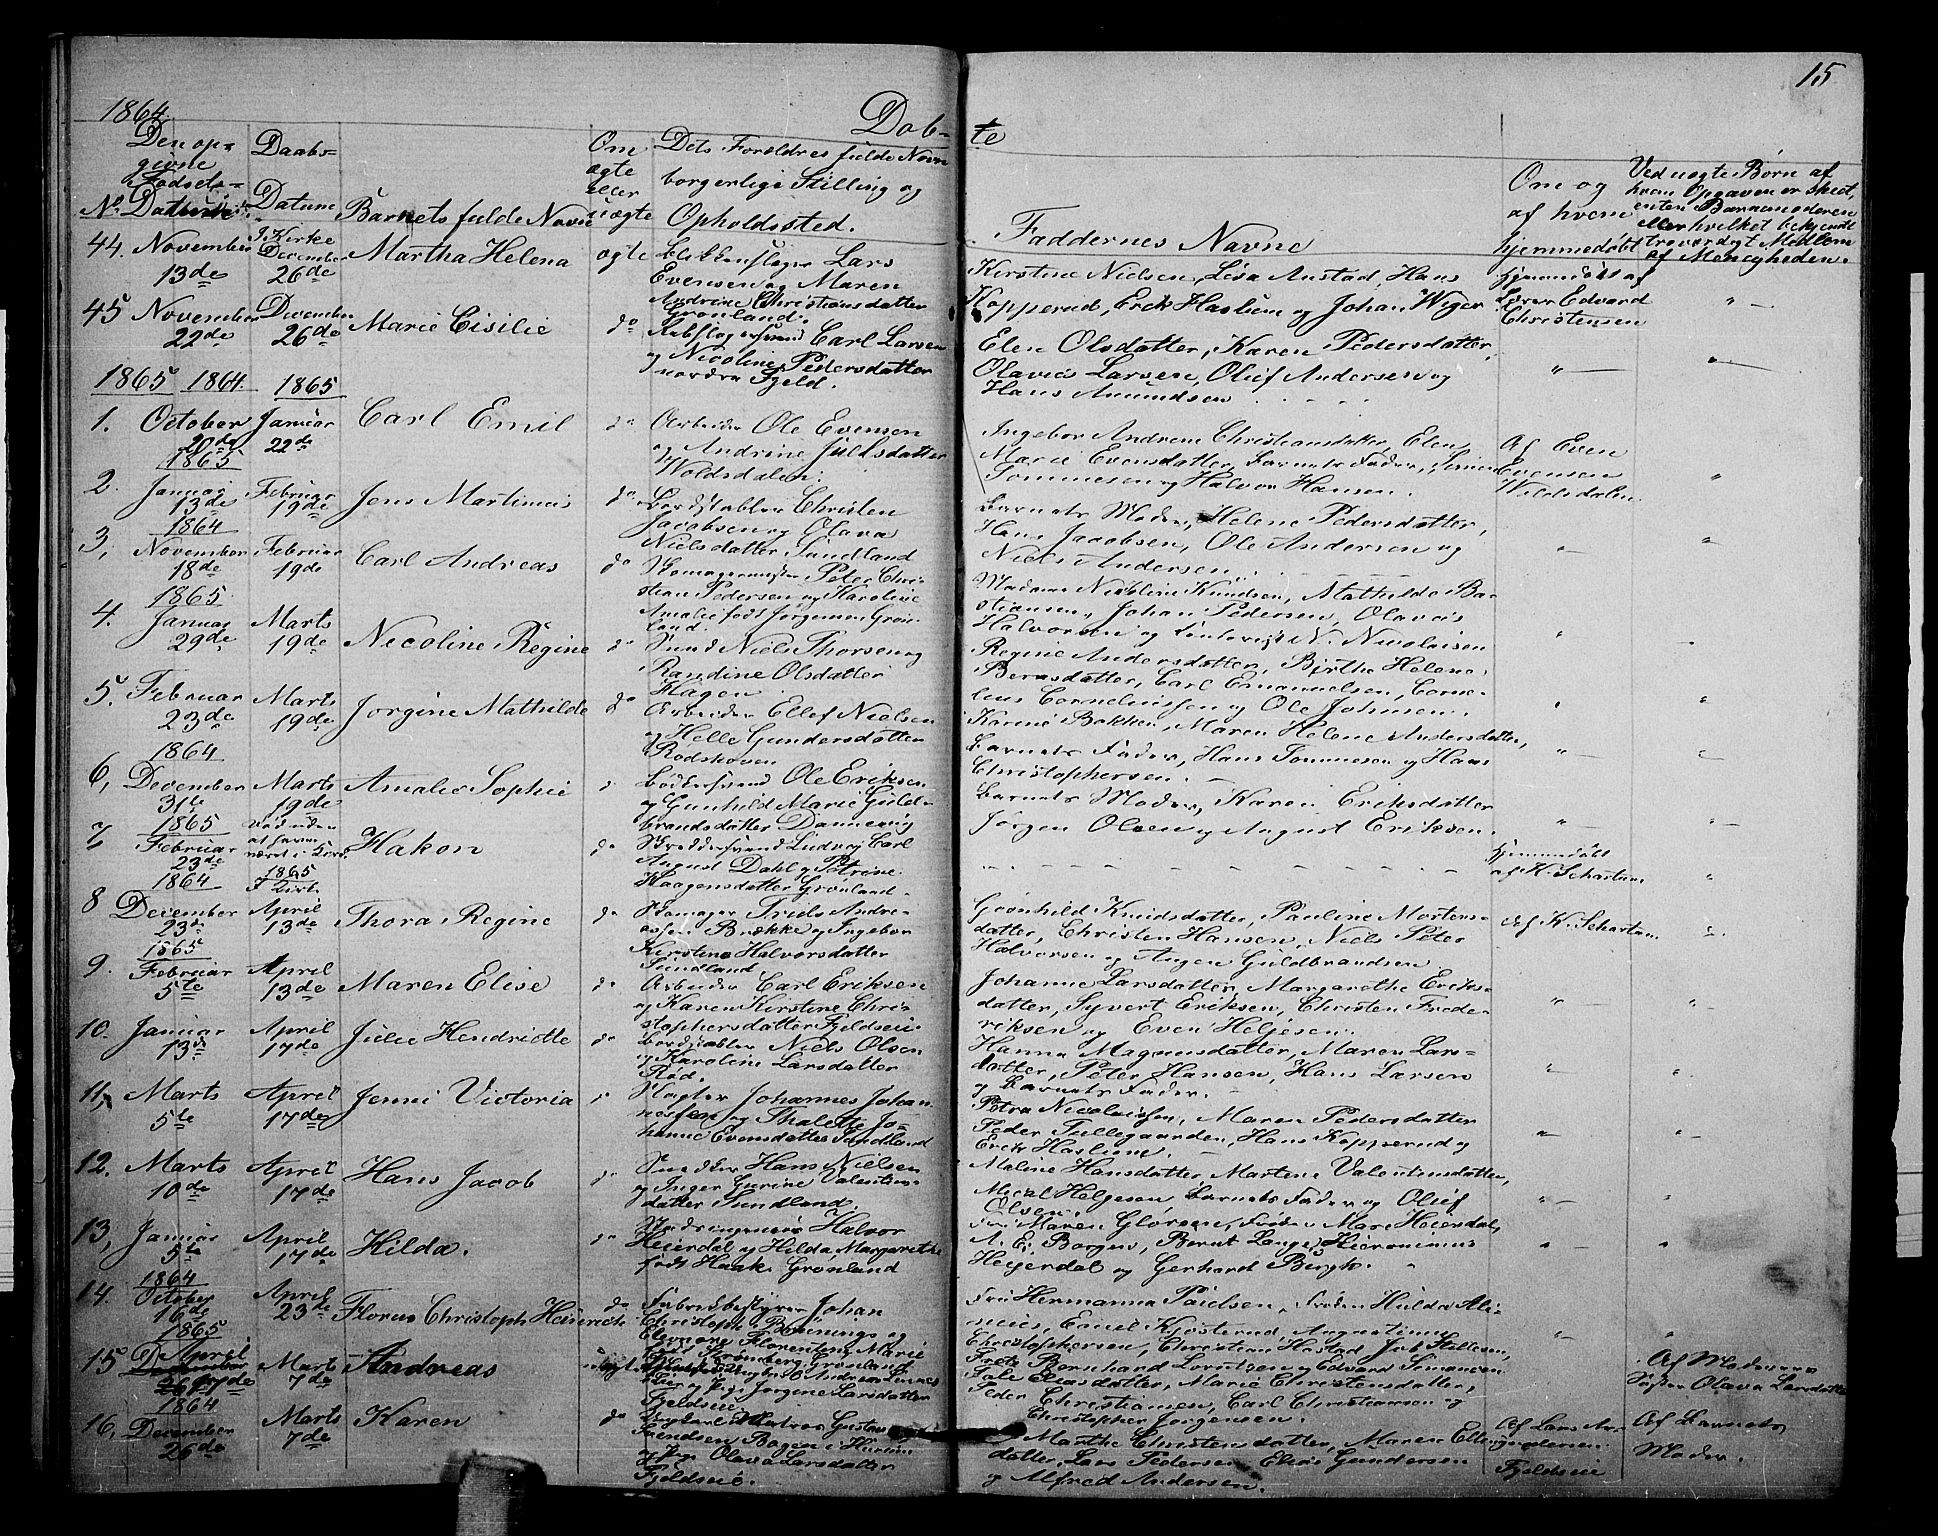 1864.
Døb-
te
15
Den op-
givne
Fødsels-
Datum
Daabs-
Datum
No
Barnets fulde Navn
Om
ægte
eller
uægte
Dets Forældres fulde Navn
borgerlige Stilling og
Opholdssted.
Faddernes Navne
Om og
af hvem
hjemmedøbt
Ved uægte Børn af
hvem Opgaven er skeet,
enten Barnemoderen
eller hvilket bekjendt
troværdigt Medlem
af Menigheden.
44. November
13de
I Kirke
December
26de
Martha Helena
ægte
Blikkenslager Lars
Evensen og Maren
Andrine Christiansdatter
Grønland.
Kirstine Nielsen, Lisa Anstad, Hans
Kopperud, Erik Haslum og Johan Wiger
Hjemmedøbt af
Lærer Edvard
Christensen
45 November
22de
December
26de
Marie Cisilie
do
Rebslagersvend Carl Larsen
og Nicoline Pedersdatter
nordre Fjeld.
Elen Olsdatter, Karen Pedersdatter,
Olavius Larsen, Oluf Andersen og
Hans Amundsen
1865 1864. 1865
1. October
20de
Januar
22de
Carl Emil
do
Arbeider Ole Evensen
og Andrine Julsdatter
Woldsdalen.
Ingebor Andrea Christiansdatter, Elen
Marie Evensdatter, Barnets Fader, Simen
Tommesen og Halvor Hansen.
Af Even
Evensen
Woldsdalen
1865
2. Januar
13de
Februar
19de
Jens Martinius
do
Bordstabler Christen
Jacobsen og Olava
Nielsdatter Sundland
Barnets Moder, Helene Pedersdatter,
Hans Jacobsen, Ole Andersen og
Niels Andersen
1864
3, November
18de
Februar
19de
Carl Andreas
do
Skomagermester Peter Chri-
stian Pedersen og Karoline
Amalie født Jørgensen Grøn-
land.
Madame Nicoline Knudsen, Mathilde Ba-
stiansen, Johan Pedersen, Olavus
Halvorsen og N. Nicolaisen
1865
4. Januar
29de
Marts
19de
Nicoline Regine
do
Svend Niels Thorsen og
Randine Olsdatter
Hagen
Regine Andersdatter, Birthe Helene
Berntsdatter, Carl Emanuelsen, Corne-
lius Corneliussen og Ole Johnsen.
5. Februar
23de
Marts
19de
Jørgine Mathilde
do
Arbeider Ellef Nielsen
og Helle Gundersdatter
Rødskoven
Karine Bakken, Maren Helene Andersdatter,
Barnets Fader, Hans Tommesen og Hans
Christophersen.
1864
6, December
31te
Marts
19de
Amalie Sophie
Bødkersvend Ole Eriksen
og Gunhild Marie Guld-
brandsdatter Dannevig
Barnets Moder, Karen Eriksdatter
Jørgen Olsen og August Eriksen.
1865
7 Februar
23de
Hakon
do
Skreddersvend Ludvig Carl
August Dahl og Petrine
Haagensdatter Grønland
Hjemmedøbt
af K. Schartum
1864
8 December
23de
1865
I Kirk.
April
13de
Thora Regine
do
Skomager Frids Andre-
assen Brække og Ingebor
Kirstine Halvorsdatter
Sundland
Gunhild Knudsdatter, Pauline Mortens-
datter, Christen Hansen, Niels Peter
Halvorsen og Augen Guldbrandsen
Af K. Schartum
1865
9. Februar
5te
April
13de
Maren Elise
do
Arbeider Carl Eriksen
og Karen Kirstine Chri-
stophersdatter Fjeldseie
Johanne Larsdatter, Margarethe Eriks-
datter, Syvert Eriksen, Christen Frede-
riksen og Even Helgesen.
10. Januar
13de
April
17de
Julie Hendriette
do
Bordstabler Niels Olsen
og Karoline Larsdatter
Rød.
Hanna Magnusdatter, Maren Lars-
datter, Peter Hansen, Hans Larsen
og Barnets Fader.
11, Marts
5te
April
17de
Jenni Victoria
Slagter Johannes Johan-
nesen og Thalette Jo-
hanne Evensdatter Sundland
Petra Nicolaisen, Maren Pedersdatter
Peder Tullegaarden, Hans Kopperud og
Erik Haslum.
12. Marts
10de
April
17de
Hans Jacob
do
Snedker Hans Nielsen
og Inger Gurine Valentins-
datter Sundland
Maline Hansdatter, Martene Valentinsdatter,
Helgesen Barnets Fader og Oluf
Olsen.
13, Januar
5te
April
17de
Hilda.
do
Stadsingeniør Halvor
Heierdal og Hilda Margarethe
født Haak Grønland
Fru Maren Glørsen, Frøken Marie Heierdal,
A. E. Borgen, Bernt Lange, Hieronimus
Heyerdal og Gerhard Bergh.
1864
14. October
16de
April
23de
Florus Christoph Heinrich
do
Fabrikbestyrer Johan
Christoph Bønnings og
Eleonore Florentine Marie
født Krømberg, Grønland
Fru Hermanna Paulsen, Frøken Hulda Ali-
neus, Emil Kjøsterud, Augustinus
Christophersen, Christian Hastad, Jab Hellesen,
Fritz Bernhard Lorentzen og Edvard Simonsen
1865
15 April
17de
Marts
7de
Andreas
uægte
Andreas Linnes
og Pige Jørgine Larsdatter
Fjeldseie
Eliasdatter, Marie Christensdatter,
Peder Christiansen, Carl Christiansen og
Christopher Jørgensen.
Af Moderens
Søster Olava Larsdatter
1864
16, December
26de
Marts
7de
Karen
do
Ungkarl Matros Gustav
Svendsen Bogen i Hurum
og Pige Olava Larsdatter
Fjeldseie.
Marthe Christensdatter, Maren Ellings-
datter, Lars Pedersen, Elias Gundersen
og Alfred Andersen.
Af Lars An-
dersen
Fjeldseie
Af Barnets
Moder.